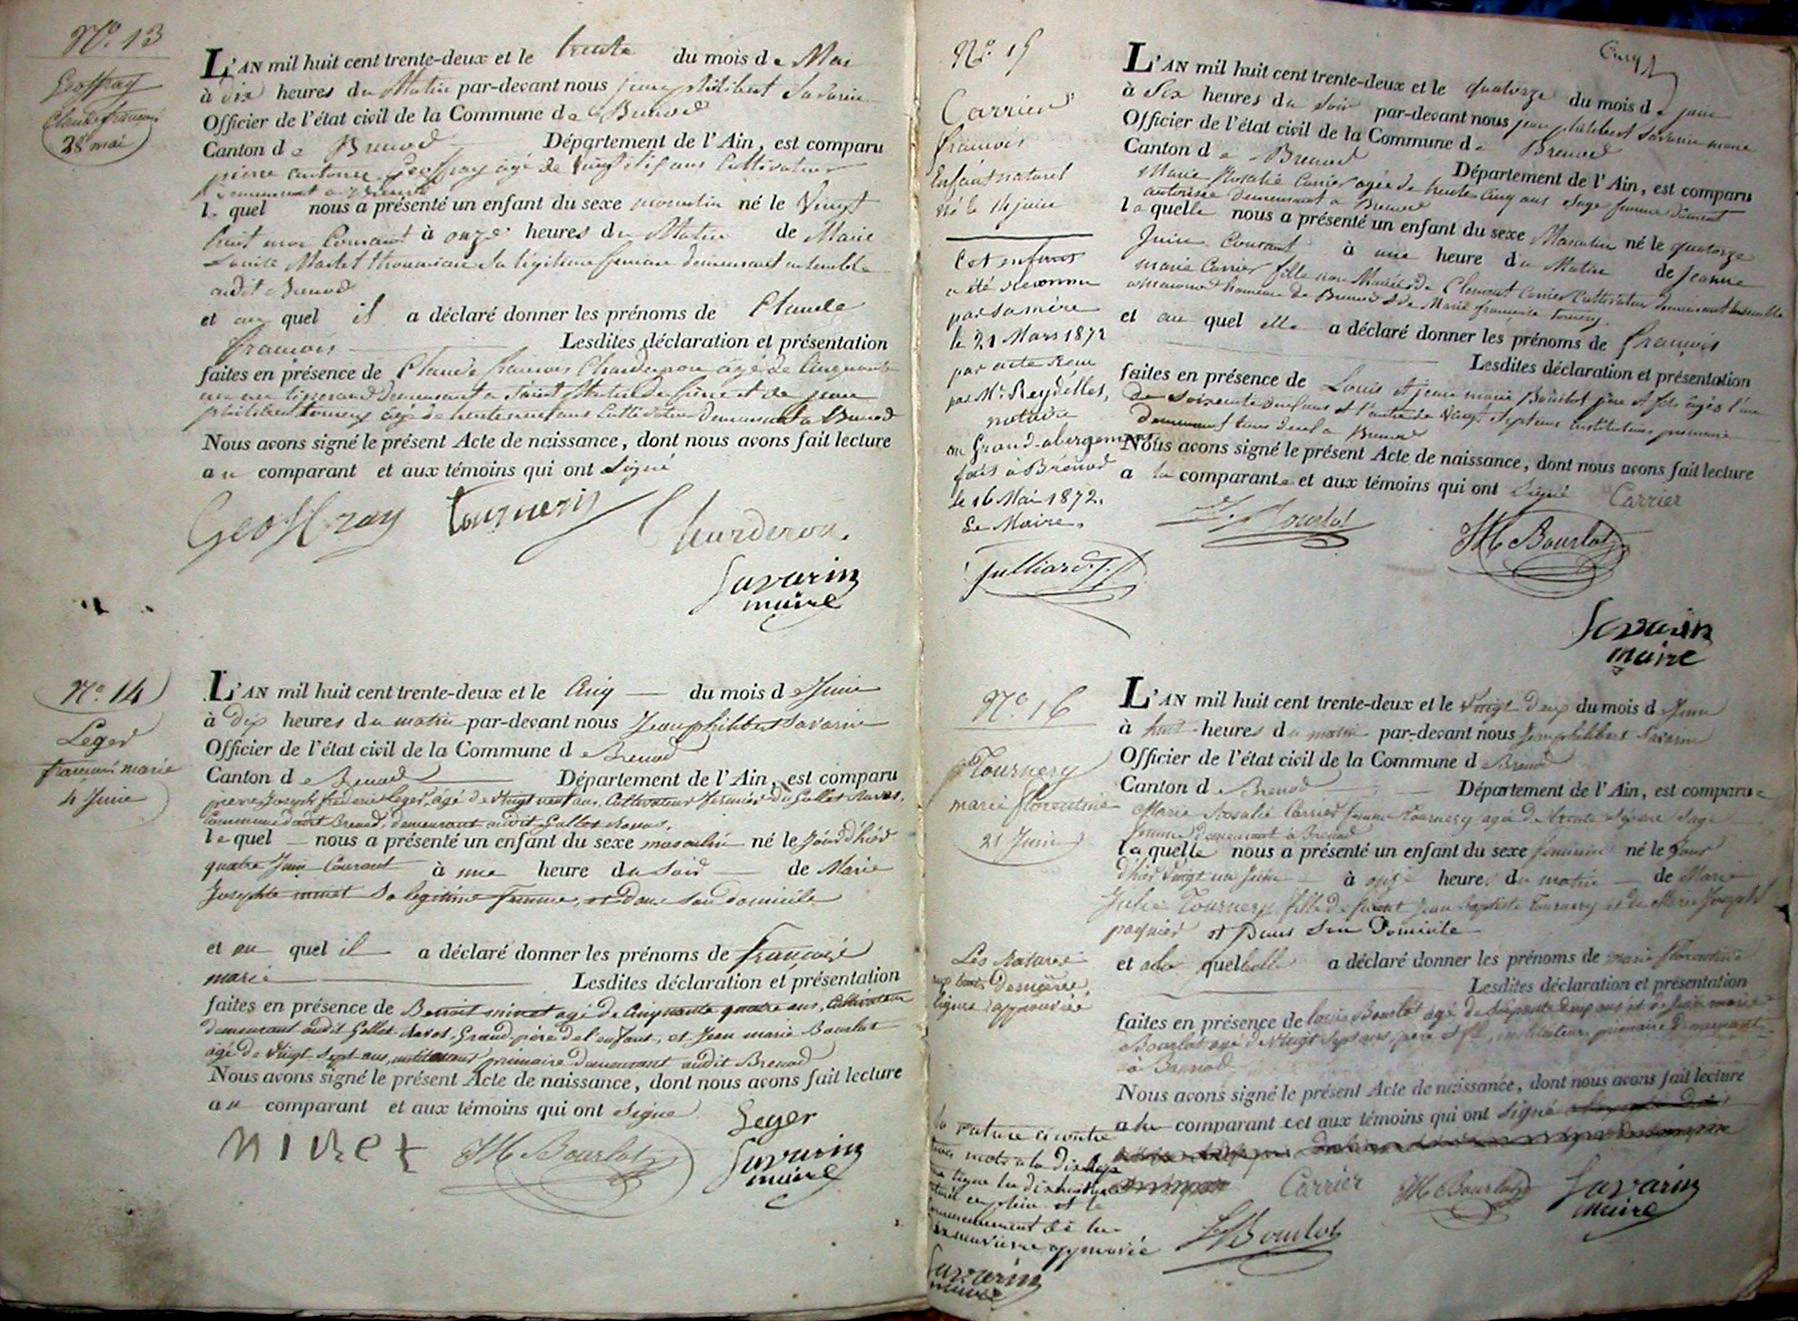 N.º 13
Geoffray
Claude françois
28 mai
L'AN mil huit cent trente-deux et le trente du mois de Mai
à dix heures du Matin par-devant nous jean philibert Savarin
Officier de l'état civil de la Commune de Brenod
Canton de Brenod Département de l'Ain, est comparu
pierre antoine Geoffray agé de vingt six ans Cultivateur
demeurant a Brenod
le quel nous a présenté un enfant du sexe masculin né le Vingt
huit mai Courant à onze heures du Matin de Marie
Martel sa légitime femme demeurant ensemble
audit Brenod
et au quel il a déclaré donner les prénoms de Claude
françois Lesdites déclaration et présentation
faites en présence de Claude françois Chardeiron agé de Cinquante
un ans tisserand demeurant a Saint Martin du frêne et de jean
philibert tournery agé de trente neuf ans Cultivateur demeurant a Brenod
Nous avons signé le présent Acte de naissance, dont nous avons fait lecture
au comparant et aux témoins qui ont signé
Geoffray tournery Charderon.
Savarin
maire
N.º 14
Leger
françois marie
4 Juin
L'AN mil huit cent trente-deux et le Cinq du mois de Juin
à dix heures du matin par-devant nous Jean philibert Savarin
Officier de l'état civil de la Commune de Brenod
Canton de Brenod Département de l'Ain, est comparu
pierre Joseph frédéric Leger, agé de vingt neuf ans, Cultivateur fermier du Gollet Navos,
Commune dudit Brenod, demeurant audit Gollet Navos,
le quel nous a présenté un enfant du sexe masculin né le Jour d'hier
quatre Juin Courant à une heure du Soir de Marie
Josephte minet Sa légitime femme, et Dans Son domicile
et au quel il a déclaré donner les prénoms de françois
marie Lesdites déclaration et présentation
faites en présence de Benoit minet agé de Cinquante quatre ans, Cultivateur
demeurant audit Gollet Navos, Grand-père de l'enfant, et Jean marie Bourlot
agé de Vingt Sept ans, instituteur primaire demeurant audit Brenod
Nous avons signé le présent Acte de naissance, dont nous avons fait lecture
au comparant et aux témoins qui ont signé
Leger
minet JM Bourlot Savarin
maire
Cinq
N.º 15
Carrier
françois
Enfant naturel
né le 14 juin
Cet enfant
a été reconnu
par sa mère
le 21 Mars 1872
par acte reçu
par Mr. Reydelles,
notaire
au Grand-abergement
fait à Brénod
le 16 Mai 1872.
Le Maire.
Julliard J.
L'AN mil huit cent trente-deux et le quatorze du mois de juin
à Six heures du Soir par-devant nous jean philibert Savarin maire
Officier de l'état civil de la Commune de Brenod
Canton de Brenod Département de l'Ain, est comparu
Marie Rosalie Carrier agée de trente Cinq ans Sage femme dûment
autorisée demeurant a Brenod
la quelle nous a présenté un enfant du sexe Masculin né le quatorze
Juin Courant à une heure du Matin de Jeanne
marie Carrier fille non Mariée de Clement Carrier Cultivateur demeurant ensemble
hameau de Brenod et de Marie françoise tournery
et au quel elle a déclaré donner les prénoms de françois
Lesdites déclaration et présentation
faites en présence de Louis et jean marie Bourlot père et fils agés l'un
de Soixante deux ans et l'autre de Vingt Sept ans instituteurs primaire
demeurant tous deux a Brenod
Nous avons signé le présent Acte de naissance, dont nous avons fait lecture
a la comparante et aux témoins qui ont signé Carrier
L. Bourlot JM Bourlot
Savarin
maire
N.º 16
Tournery
marie florentine
21 Juin
L'AN mil huit cent trente-deux et le Vingt Deux du mois de Juin
à huit heures du matin par-devant nous Jean philibert Savarin
Officier de l'état civil de la Commune de Brenod
Canton de Brenod Département de l'Ain, est comparue
Marie Rosalie Carrier femme Tournery agée de trente Six ans Sage
femme demeurant à Brenod
la quelle nous a présenté un enfant du sexe feminin né le Jour
d'hier Vingt un Juin à onze heures du matin de Marie
Julie Tournery fille de feu Jean Baptiste Tournery et de Marie Joseph
paquier et Dans Son Domicile
et a la quelle elle a déclaré donner les prénoms de marie florentine
Lesdites déclaration et présentation
faites en présence de louis Bourlot agé de Soixante deux ans et de Jean marie
Bourlot agé de Vingt Sept ans, père et fils, instituteurs primaire demeurant
à Brenod
Les Ratures
aux trois Dernières
lignes approuvées
Nous avons signé le présent Acte de naissance, dont nous avons fait lecture
a la comparante et aux témoins qui ont signé
la rature ci contre
mots a la dix sept
ligne la dix huit
en plein et le
commencement de la
dix neuvième approuvée
Savarin
maire
Carrier JM Bourlot Savarin
maire
L Bourlot